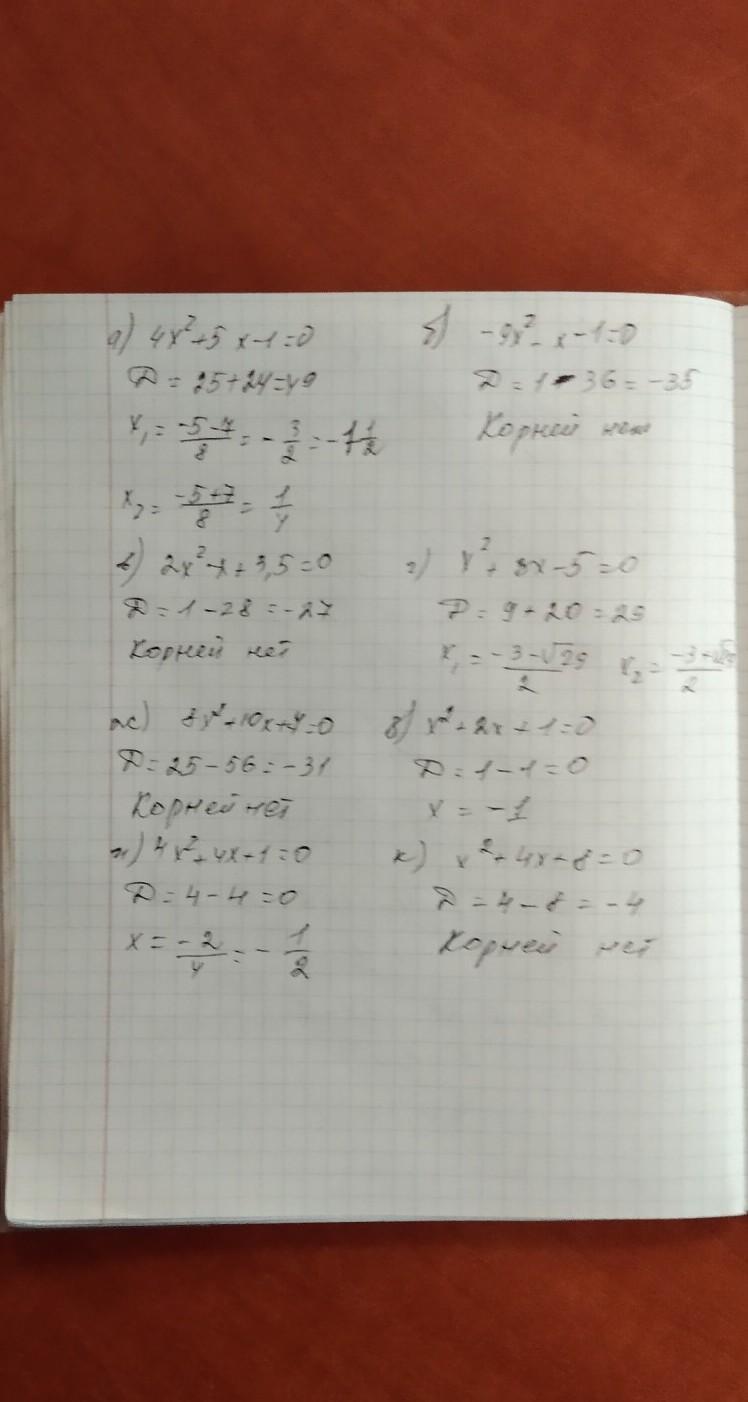 а) 4x²+5x-1=0
D = 25+24=49
x₁ = (-5-7)/8 = -3/2 = -1 1/2
x₂ = (-5+7)/8 = 1/4
б) -9x²-x-1=0
D = 1-36 = -35
Корней нет
в) 2x²-x+3,5=0
D = 1-28 = -27
Корней нет
г) x²+3x-5=0
D = 9+20=29
x₁ = (-3-√29)/2 x₂ = (-3+√29)/2
ж) 8x²+10x+7=0
D = 25-56 = -31
Корней нет
з) x²+2x+1=0
D = 1-1=0
x = -1
и) 4x²+4x+1=0
D = 4-4=0
x = -2/4 = -1/2
к) x²+4x+8=0
D = 4-8 = -4
Корней нет